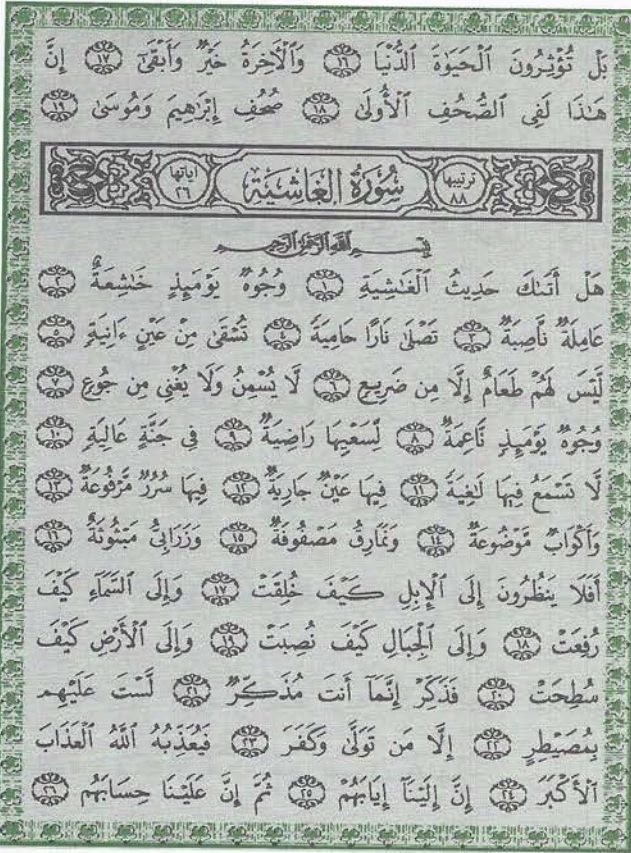 بَلْ تُؤْثِرُونَ ٱلْحَيَوٰةَ ٱلدُّنْيَا ١٦ وَٱلْءَاخِرَةُ خَيْرٌ وَأَبْقَىٰٓ ١٧ إِنَّ
هَـٰذَا لَفِى ٱلصُّحُفِ ٱلْأُولَىٰ ١٨ صُحُفِ إِبْرَٰهِيمَ وَمُوسَىٰ ١٩
ترتيبها ٨٨ سُورَةُ الغَاشِيَة آياتها ٢٦
بِسْمِ ٱللَّهِ ٱلرَّحْمَـٰنِ ٱلرَّحِيمِ
هَلْ أَتَىٰكَ حَدِيثُ ٱلْغَـٰشِيَةِ ١ وُجُوهٌ يَوْمَئِذٍ خَـٰشِعَةٌ ٢
عَامِلَةٌ نَّاصِبَةٌ ٣ تَصْلَىٰ نَارًا حَامِيَةً ٤ تُسْقَىٰ مِنْ عَيْنٍ ءَانِيَةٍ ٥
لَّيْسَ لَهُمْ طَعَامٌ إِلَّا مِن ضَرِيعٍ ٦ لَّا يُسْمِنُ وَلَا يُغْنِى مِن جُوعٍ ٧
وُجُوهٌ يَوْمَئِذٍ نَّاعِمَةٌ ٨ لِّسَعْيِهَا رَاضِيَةٌ ٩ فِى جَنَّةٍ عَالِيَةٍ ١٠
لَّا تَسْمَعُ فِيهَا لَـٰغِيَةً ١١ فِيهَا عَيْنٌ جَارِيَةٌ ١٢ فِيهَا سُرُرٌ مَّرْفُوعَةٌ ١٣
وَأَكْوَابٌ مَّوْضُوعَةٌ ١٤ وَنَمَارِقُ مَصْفُوفَةٌ ١٥ وَزَرَابِىُّ مَبْثُوثَةٌ ١٦
أَفَلَا يَنظُرُونَ إِلَى ٱلْإِبِلِ كَيْفَ خُلِقَتْ ١٧ وَإِلَى ٱلسَّمَآءِ كَيْفَ
رُفِعَتْ ١٨ وَإِلَى ٱلْجِبَالِ كَيْفَ نُصِبَتْ ١٩ وَإِلَى ٱلْأَرْضِ كَيْفَ
سُطِحَتْ ٢٠ فَذَكِّرْ إِنَّمَآ أَنتَ مُذَكِّرٌ ٢١ لَّسْتَ عَلَيْهِم
بِمُصَيْطِرٍ ٢٢ إِلَّا مَن تَوَلَّىٰ وَكَفَرَ ٢٣ فَيُعَذِّبُهُ ٱللَّهُ ٱلْعَذَابَ
ٱلْأَكْبَرَ ٢٤ إِنَّ إِلَيْنَآ إِيَابَهُمْ ٢٥ ثُمَّ إِنَّ عَلَيْنَا حِسَابَهُم ٢٦